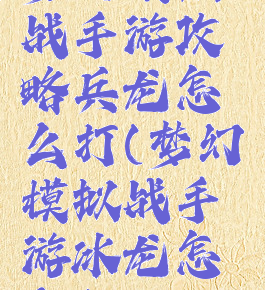 战手游攻
略兵龙怎
么打(梦幻
模拟战手
游冰龙怎